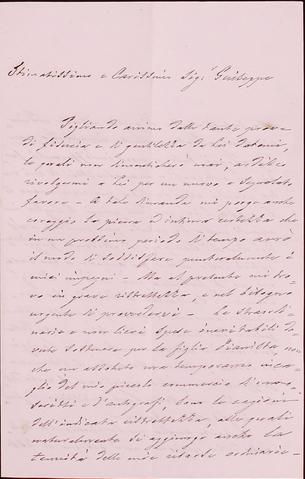 Stimatissimo e Carissimo Sig.r Giuseppe
Pigliando animo dalle tante prove
di fiducia e di gentilezza da Lei datemi,
le quali non dimenticherò mai, ardisco
rivolgermi a Lei per un nuovo e segnalato
favore — A tale dimanda mi porge anche
coraggio la piena ed intima certezza che
in un prossimo periodo di tempo avrò
il modo di soddisfare puntualmente ai
miei impegni — Ma al presente mi tro-
vo in grave ristrettezza, e nel bisogno
urgente di provvedervi — Le straordi-
narie e non lievi spese inevitabili do-
vute sostenere per la figlia Pianista non
che un assoluto ma temporaneo
del mio piccolo commercio di
e d'autografi, sono le cagioni
dell'indicata ristrettezza, alle quali
naturalmente si aggiunge anche la
tenuità delle mie risorse ordinarie —